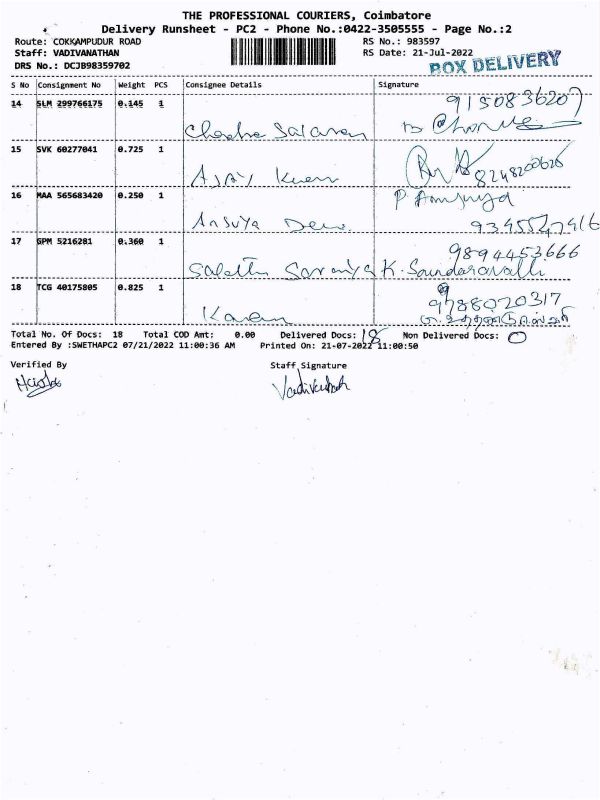 THE PROFESSIONAL COURIERS, Coimbatore
Delivery Runsheet - PC2 - Phone No.:0422-3505555 - Page No.:2
Route: COKKAMPUDUR ROAD
RS No.: 983597
Staff: VADIVANATHAN
RS Date: 21-Jul-2022
DRS No.: DCJB98359702
BOX DELIVERY
S No Consignment No Weight PCS Consignee Details Signature
14 SLM 299766175 0.145 1
9150836207
15 SVK 60277041 0.725 1
8248200626
16 MAA 565683420 0.250 1
Ansuya Devi
17 GPM 5216281 0.360 1
9894453666
K. Soundaravalli
18 TCG 40175805 0.825 1
9788020317
Total No. Of Docs: 18 Total COD Amt: 0.00 Delivered Docs: 18 Non Delivered Docs: 0
Entered By :SWETHAPC2 07/21/2022 11:00:36 AM Printed On: 21-07-2022 11:00:50
Verified By Staff Signature